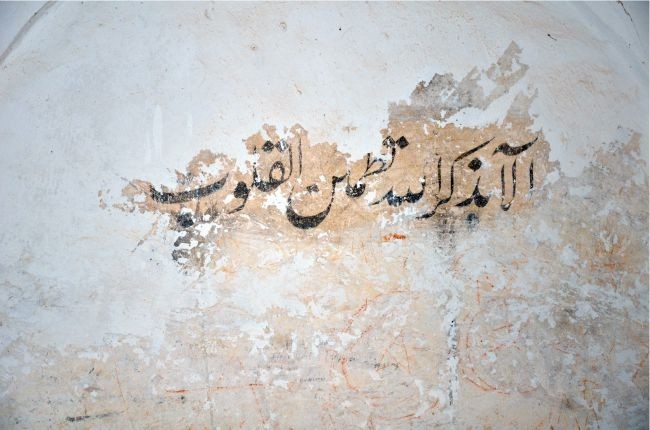 الا بذکرالله تطمئن القلوب